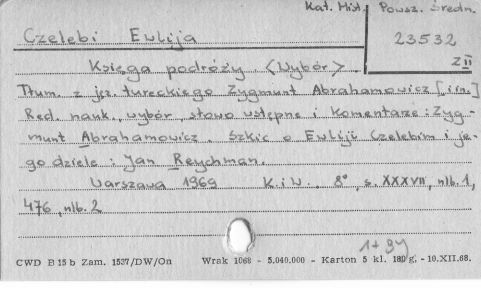 Kat. Hist. Powsz. Średn.
Czelebi Ewlija
23532
Z II
Księga podróży <Wybór>
Tłum. z jęz. tureckiego Zygmunt Abrahamowicz [i in.]
Red. nauk., wybór, słowo wstępne i komentarze: Zyg-
munt Abrahamowicz. Szkic o Ewliji Czelebim i je-
go dziele: Jan Reychman.
Warszawa 1969 K.i W. 8°, s. XXXVII, nlb. 1,
476, nlb. 2
1+9y
CWD B 15 b Zam. 1537/DW/On Wrak 1068 - 5.040.000 - Karton 5 kl. 180 g. - 10.XII.68.